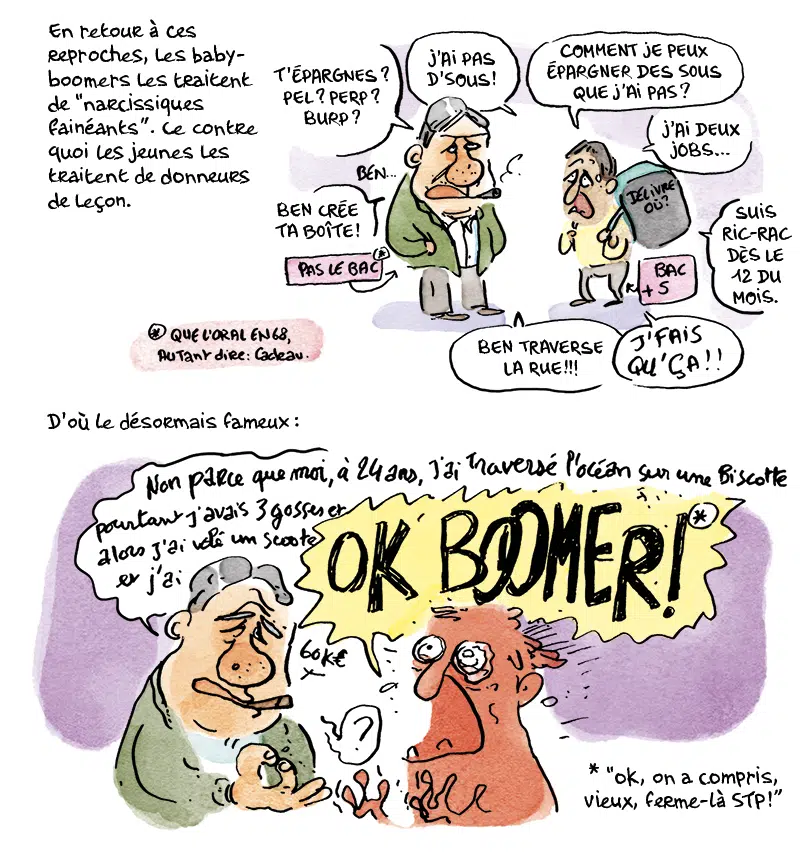 En retour à ces
reproches, les baby-
boomers les traitent
de "narcissiques
fainéants". Ce contre
quoi les jeunes les
traitent de donneurs
de leçon.
T'ÉPARGNES ?
PEL ? PERP ?
BURP ?
J'AI PAS
D'SOUS !
COMMENT JE PEUX
ÉPARGNER DES SOUS
QUE J'AI PAS ?
J'AI DEUX
JOBS...
BEN...
BEN CRÉE
TA BOÎTE !
DÉLIVRE
OÙ ?
SUIS
RIC-RAC
DÈS LE
12 DU
MOIS.
PAS LE BAC *
BAC
+ 5
* QUE L'ORAL EN 68,
AUTANT DIRE : CADEAU.
BEN TRAVERSE
LA RUE !!!
J'FAIS
QU'ÇA !!
D'où le désormais fameux :
Non parce que moi, à 24 ans, j'ai traversé l'océan sur une Biscotte
pourtant j'avais 3 gosses et
alors j'ai volé un scoote
et j'ai
OK BOOMER ! *
60K€
?
* "ok, on a compris,
vieux, ferme-là STP !"